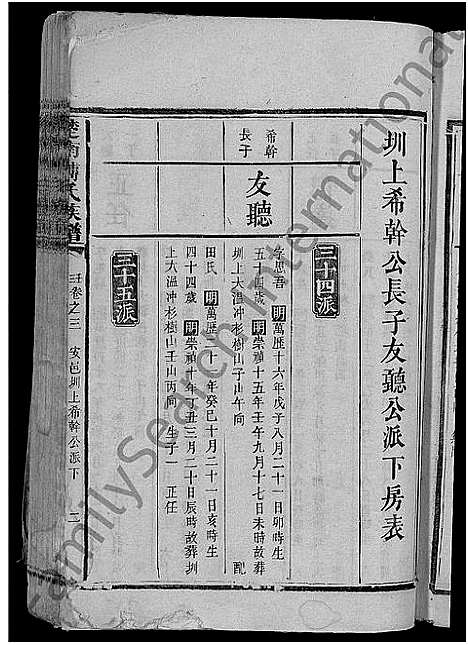 圳上希幹公長子友聽公派下房表
三十四派
希幹
長子
友聽
字思吾 明萬歷十六年戊子八月二十一日卯時生
五十四歲 明崇禎十五年壬午九月十七日未時故葬
圳上大溫冲杉樹山子山午向 配
田氏 明萬歷二十一年癸巳十月二十一日亥時生
四十四歲 明崇禎十年丁丑三月二十日辰時故葬圳
上大溫冲杉樹山壬山丙向 生子一 正任
三十五派
氏族譜
卷之三 安邑圳上希幹公派下
FamilySearch International